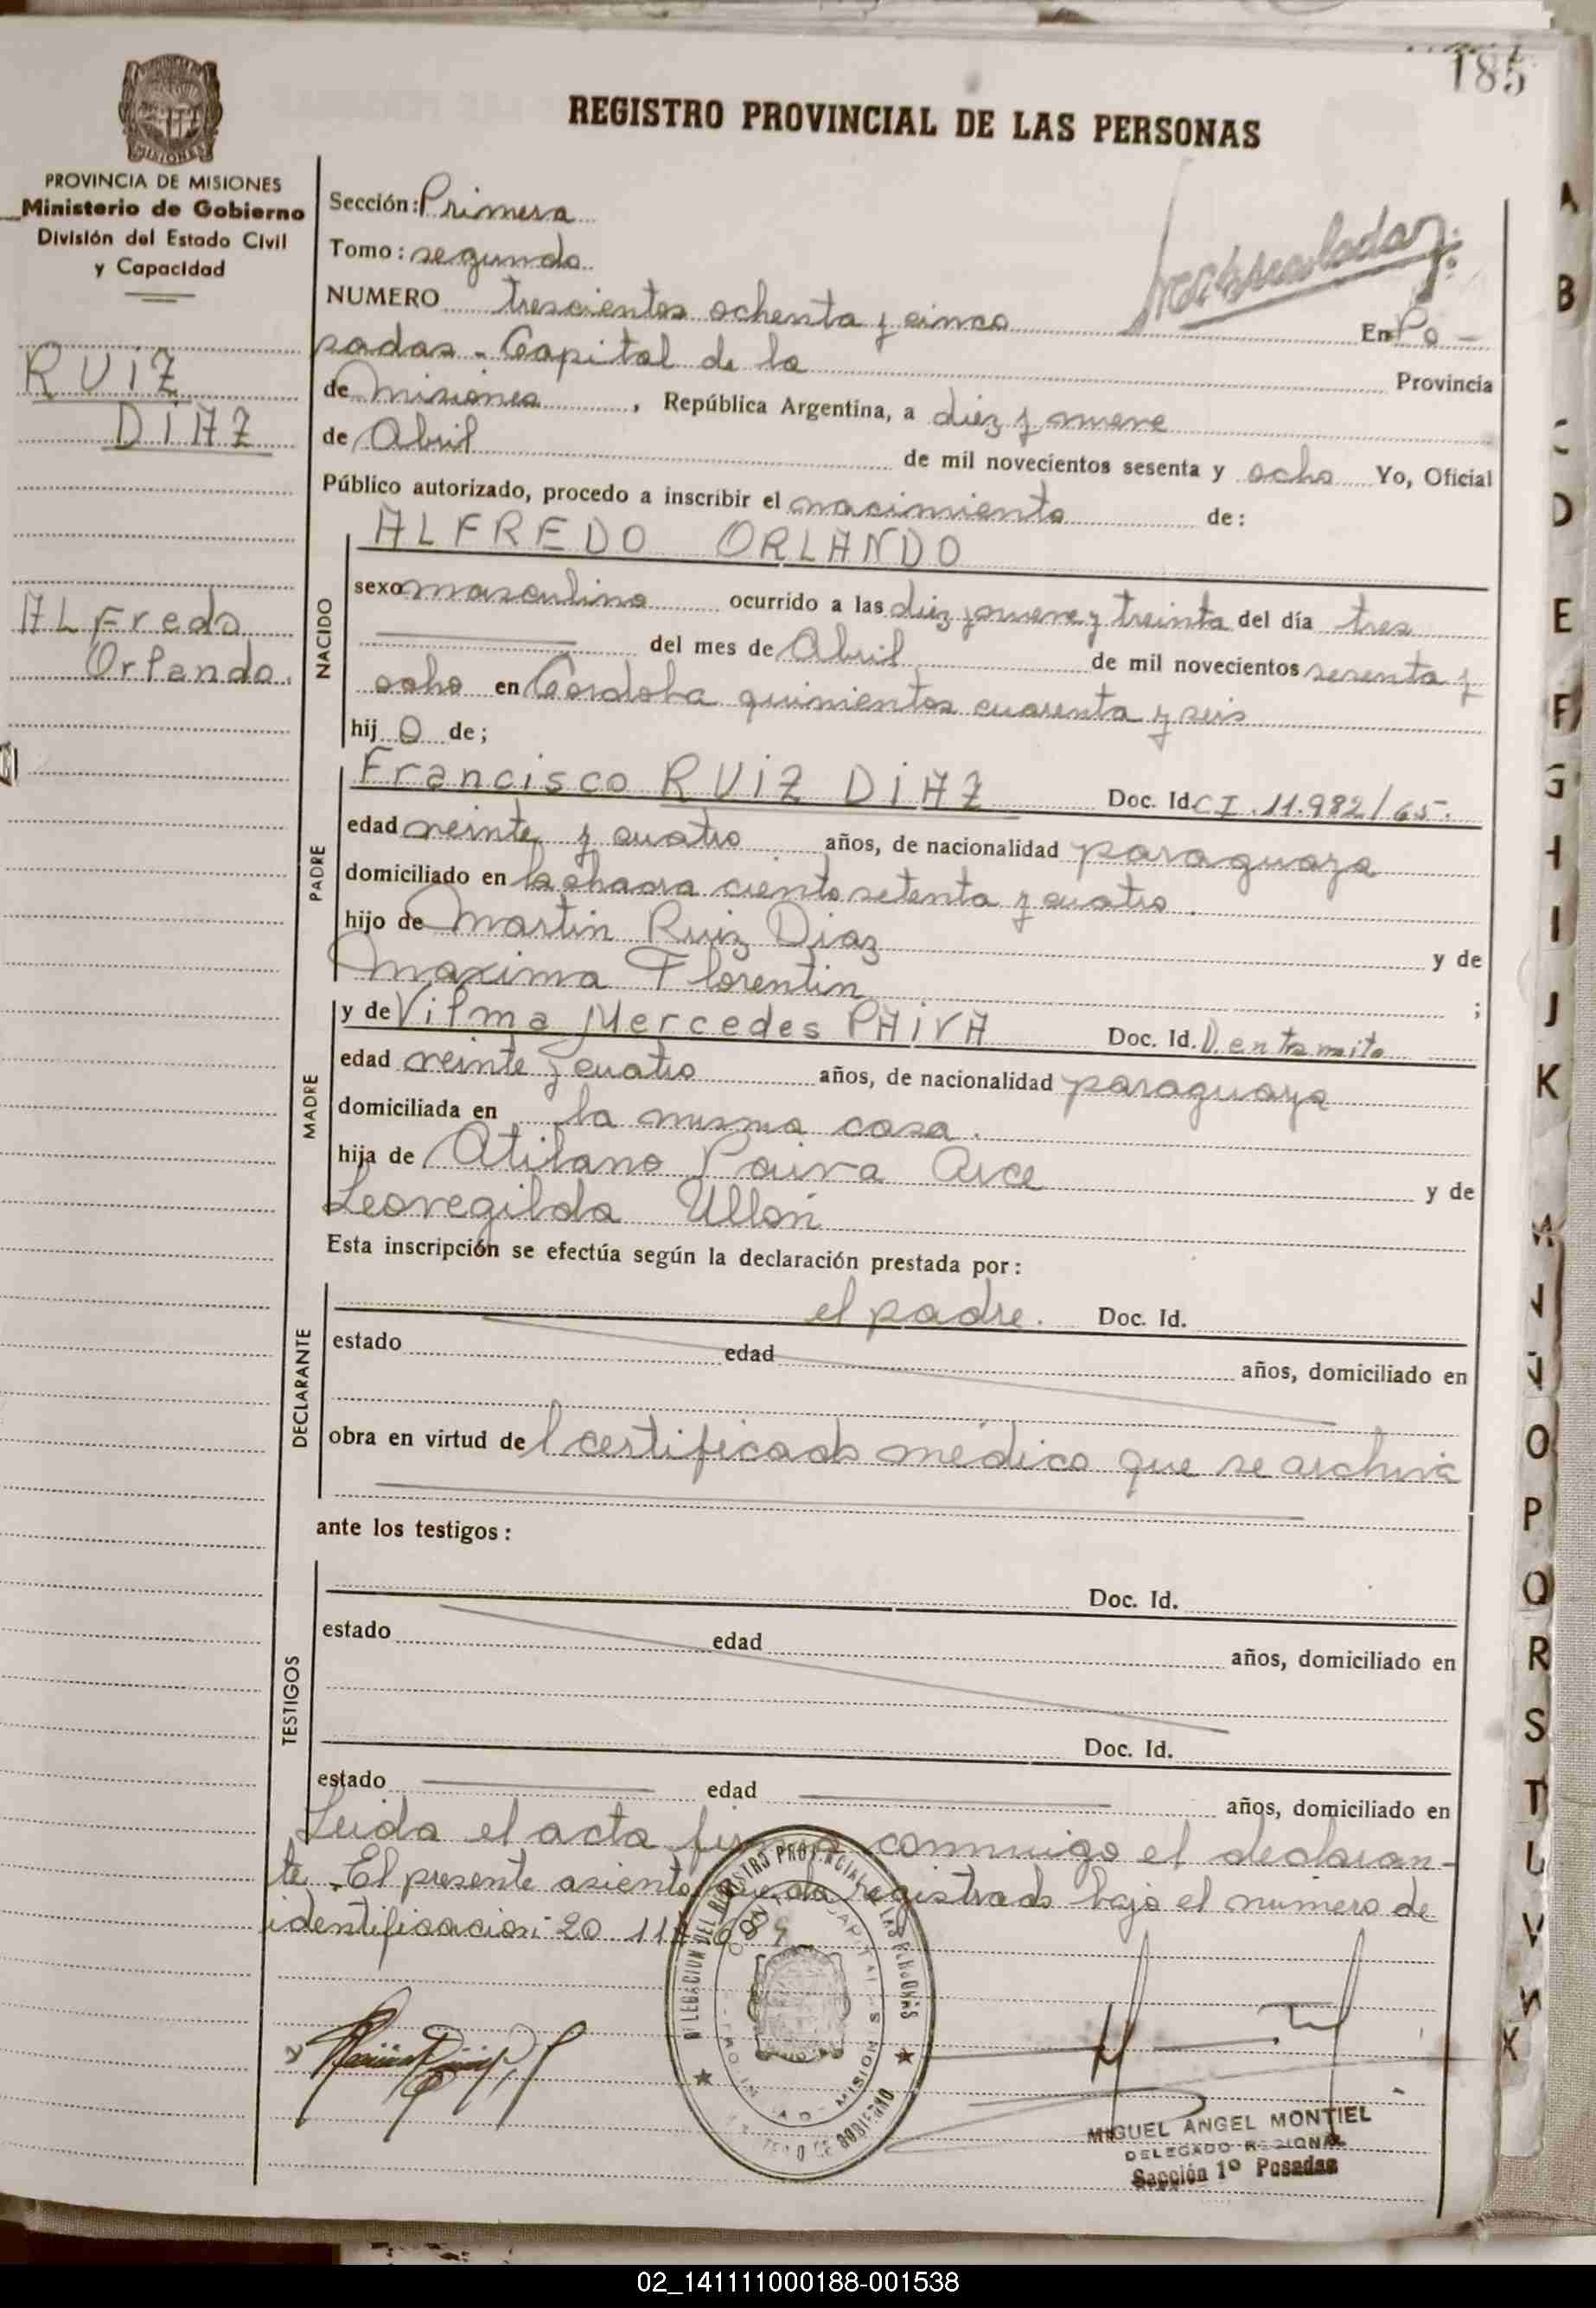 185
REGISTRO PROVINCIAL DE LAS PERSONAS
MISIONES
PROVINCIA DE MISIONES
Ministerio de Gobierno
División del Estado Civil
y Capacidad
RUiZ
DiAZ
ALFredo
Orlando.
Sección: Primera
Tomo: segundo
NUMERO trescientos ochenta y cinco En Po-
sadas - Capital de la Provincia
de Misiones, República Argentina, a diez y nueve
de Abril de mil novecientos sesenta y ocho Yo, Oficial
Público autorizado, procedo a inscribir el nacimiento de:
NACIDO
ALFREDO ORLANDO
sexo masculino ocurrido a las diez y nueve y treinta del día tres
del mes de Abril de mil novecientos sesenta y
ocho en Cordoba quinientos cuarenta y seis
hij o de;
PADRE
Francisco RUiZ DiAZ Doc. Id. C I. 11.982/65.
edad veinte y cuatro años, de nacionalidad paraguaya
domiciliado en la chacra ciento setenta y cuatro.
hijo de Martin Ruiz Diaz y de
Maxima Florentin ;
MADRE
y de Vilma Mercedes PAiVA Doc. Id. D. en tramite
edad veinte y cuatro años, de nacionalidad paraguaya
domiciliada en la misma casa.
hija de Atilano Paiva Arce y de
Leovegilda Ullón
Esta inscripción se efectúa según la declaración prestada por:
DECLARANTE
el padre. Doc. Id.
estado edad años, domiciliado en
obra en virtud de l certificado médico que se archiva
ante los testigos:
TESTIGOS
Doc. Id.
estado edad años, domiciliado en
Doc. Id.
estado edad años, domiciliado en
Leida el acta firma conmigo el declaran-
te. El presente asiento queda registrado bajo el número de
identificación: 20 11
DELEGACION DEL REGISTRO PROVINCIAL DE LAS PERSONAS
MIGUEL ANGEL MONTIEL
DELEGADO REGIONAL
Sección 1º Posadas
A
B
C
D
E
F
G
H
I
J
K
O
P
Q
R
S
T
U
V
X
02_141111000188-001538